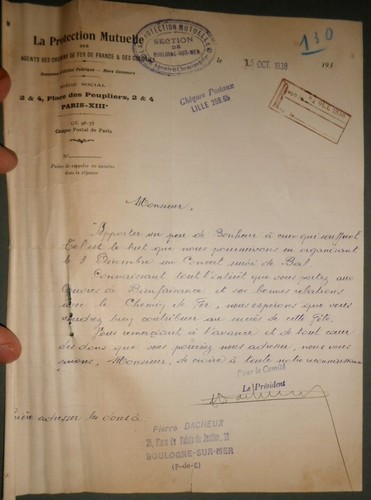 La Protection Mutuelle
DES
AGENTS DES CHEMINS DE FER DE FRANCE & DES COLONIES
SIÈGE SOCIAL
2 & 4, Place des Peupliers, 2 & 4
PARIS-XIIIe
Compte Postal de Paris
No
Prière de rappeler ce numéro
dans la réponse
LA PROTECTION MUTUELLE
SECTION
DE
BOULOGNE-SUR-MER
le
OCT. 1938
193
130
Chèques Postaux
LILLE
Monsieur,
Apporter un peu de Bonheur à ceux qui souffrent
Tel est le but que nous poursuivons en organisant
le 3 Décembre un Concert suivi de Bal
Connaissant tout l'intérêt que vous portez aux
Œuvres de Bienfaisance et vos bonnes relations
avec le Chemin de Fer, nous espérons que vous
voudrez bien contribuer au succès de cette Fête.
Vous remerciant à l'avance et de tout cœur
des dons que vous pourriez nous adresser, nous vous
prions, Monsieur, de croire à toute notre reconnaissance
Pour le Comité
Le Président
Prière adresser les dons à
Pierre DACHEUX
Rue du Palais de Justice,
BOULOGNE-SUR-MER
(P-de-C)